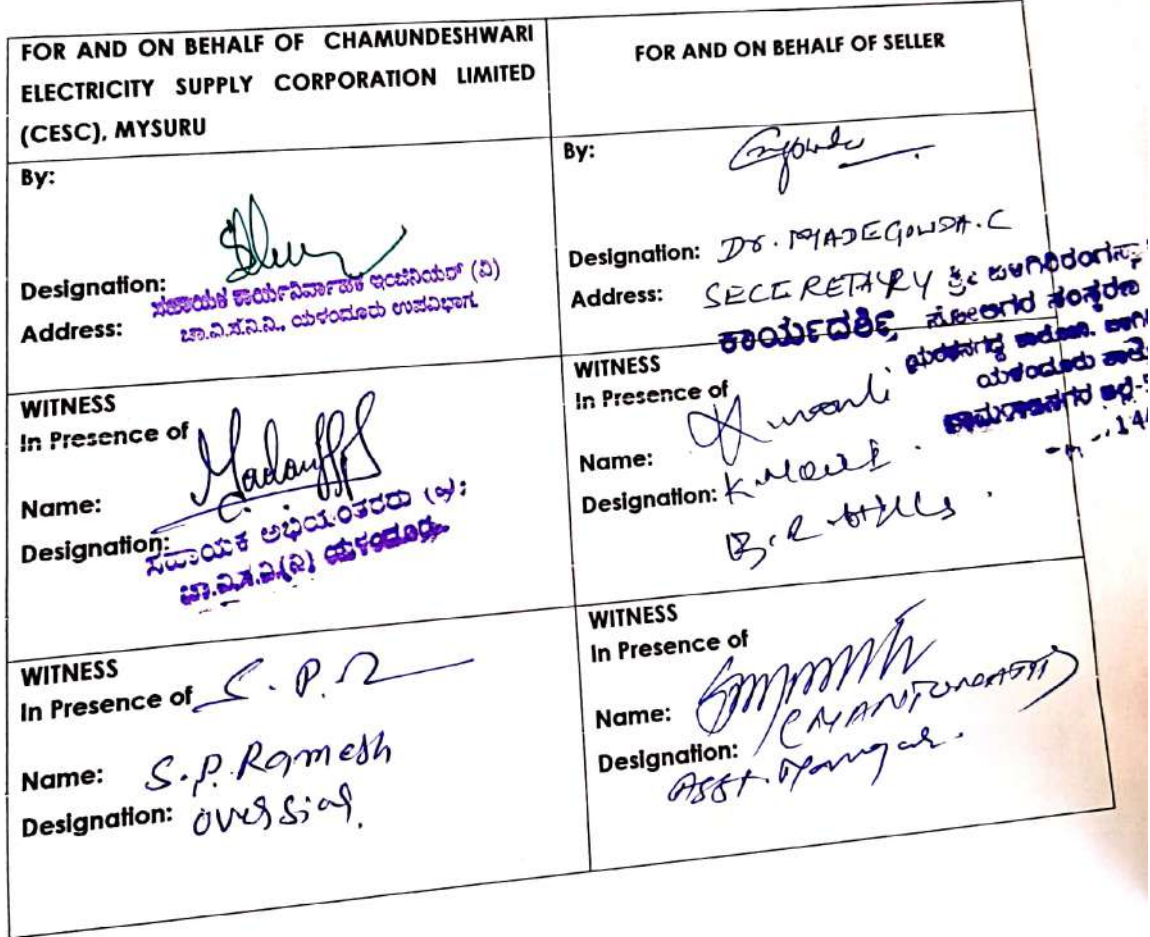 FOR AND ON BEHALF OF CHAMUNDESHWARI
ELECTRICITY SUPPLY CORPORATION LIMITED
(CESC), MYSURU
FOR AND ON BEHALF OF SELLER
By:
Designation:
ಸಹಾಯಕ ಕಾರ್ಯನಿರ್ವಾಹಕ ಇಂಜಿನಿಯರ್ (ವಿ)
Address:
ಚಾ.ವಿ.ಸ.ನಿ.ನಿ., ಯಳಂದೂರು ಉಪವಿಭಾಗ
By:
Designation: Dr. MADEGOWDA. C
Address: SECERETARY ಶ್ರೀ
ಕಾರ್ಯದರ್ಶಿ
ಸೋಲಿಗರ ಸಂಸ್ಕರಣ
ಯಳಂದೂರು
WITNESS
In Presence of
Name:
Designation:
ಸಹಾಯಕ ಅಭಿಯಂತರರು
ಯಳಂದೂರು
WITNESS
In Presence of
Name:
Designation:
B.R Hills
WITNESS
In Presence of S.P.R
Name: S.P. Ramesh
Designation: oversiar
WITNESS
In Presence of
Name:
Designation:
Asst. Manager